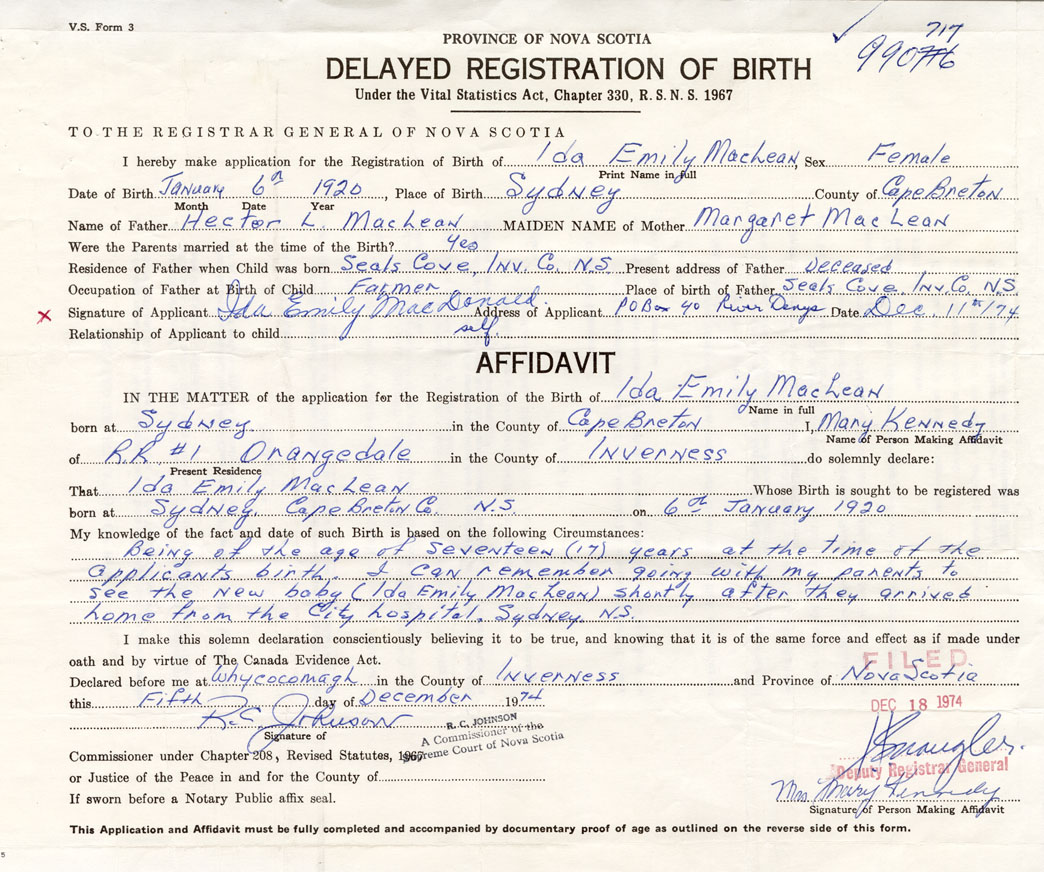 V.S. Form 3
717
990776
PROVINCE OF NOVA SCOTIA
DELAYED REGISTRATION OF BIRTH
Under the Vital Statistics Act, Chapter 330, R. S. N. S. 1967
TO THE REGISTRAR GENERAL OF NOVA SCOTIA
I hereby make application for the Registration of Birth of Ida Emily MacLean, Sex Female
Print Name in full
Date of Birth January 6th 1920, Place of Birth Sydney County of Cape Breton
Month Date Year
Name of Father Hector L. MacLean MAIDEN NAME of Mother Margaret MacLean
Were the Parents married at the time of the Birth? Yes
Residence of Father when Child was born Seals Cove, Inv. Co. N.S Present address of Father Deceased
Occupation of Father at Birth of Child Farmer Place of birth of Father Seals Cove, Inv. Co. N.S.
x Signature of Applicant Ida Emily MacDonald. Address of Applicant P O Box 40 River Denys Date Dec. 11th/74
Relationship of Applicant to child self.
AFFIDAVIT
IN THE MATTER of the application for the Registration of the Birth of Ida Emily MacLean
Name in full
born at Sydney in the County of Cape Breton I, Mary Kennedy
Name of Person Making Affidavit
of R.R #1 Orangedale in the County of Inverness do solemnly declare:
Present Residence
That Ida Emily MacLean Whose Birth is sought to be registered was
born at Sydney, Cape Breton Co. N.S. on 6th January 1920
My knowledge of the fact and date of such Birth is based on the following Circumstances:
Being of the age of seventeen (17) years at the time of the
applicants birth. I can remember going with my parents to
see the new baby (Ida Emily MacLean) shortly after they arrived
home from the City hospital, Sydney, N.S.
I make this solemn declaration conscientiously believing it to be true, and knowing that it is of the same force and effect as if made under
oath and by virtue of The Canada Evidence Act.
FILED
Declared before me at Whycocomagh in the County of Inverness and Province of Nova Scotia
this Fifth day of December 1974
DEC 18 1974
R.C. Johnson
Signature of
R. C. JOHNSON
A Commissioner of the
Supreme Court of Nova Scotia
Commissioner under Chapter 208, Revised Statutes, 1967
Deputy Registrar General
or Justice of the Peace in and for the County of
Mrs Mary Kennedy
If sworn before a Notary Public affix seal.
Signature of Person Making Affidavit
This Application and Affidavit must be fully completed and accompanied by documentary proof of age as outlined on the reverse side of this form.
5